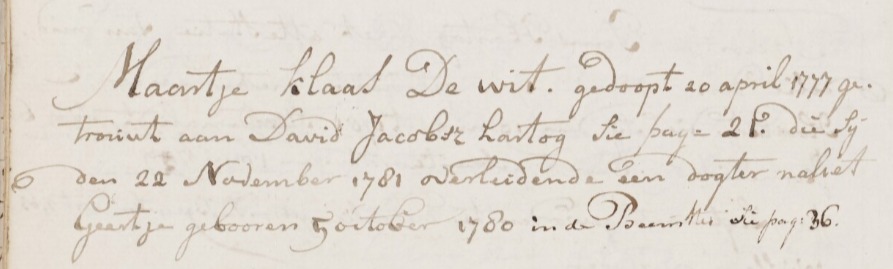 Maartje klaas De wit. gedoopt 20 april 1777 ge-
trouwt aan David Jacobsz hartog Sie page 21. die sij
den 22 November 1781 overleidende een dogter naliet
Geertje gebooren 5 october 1780 in de Beemster Sie pag: 36.